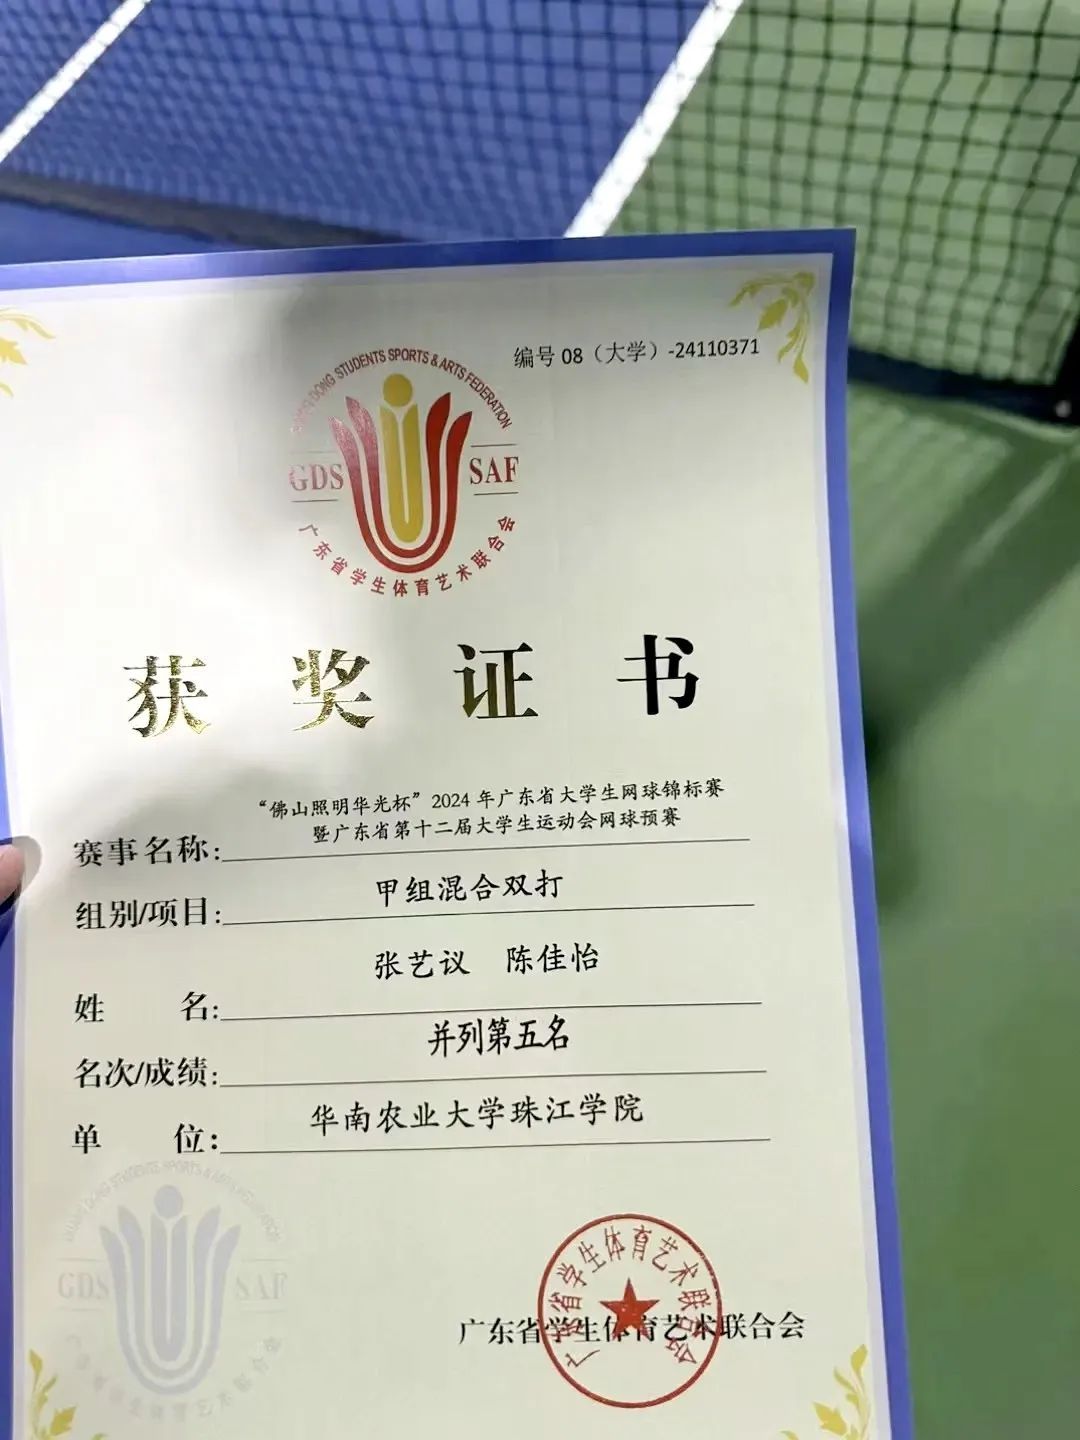 编号 08（大学）-24110371
GUANG DONG STUDENTS SPORTS & ARTS FEDERATION
GDS SAF
广东省学生体育艺术联合会
获奖证书
“佛山照明华光杯”2024 年广东省大学生网球锦标赛
暨广东省第十二届大学生运动会网球预赛
赛事名称：
甲组混合双打
组别/项目：
张艺议 陈佳怡
姓 名：
并列第五名
名次/成绩：
华南农业大学珠江学院
单 位：
GUANG DONG STUDENTS SPORTS & ARTS FEDERATION
GDS SAF
广东省学生体育艺术联合会
广东省学生体育艺术联合会
广东省学生体育艺术联合会